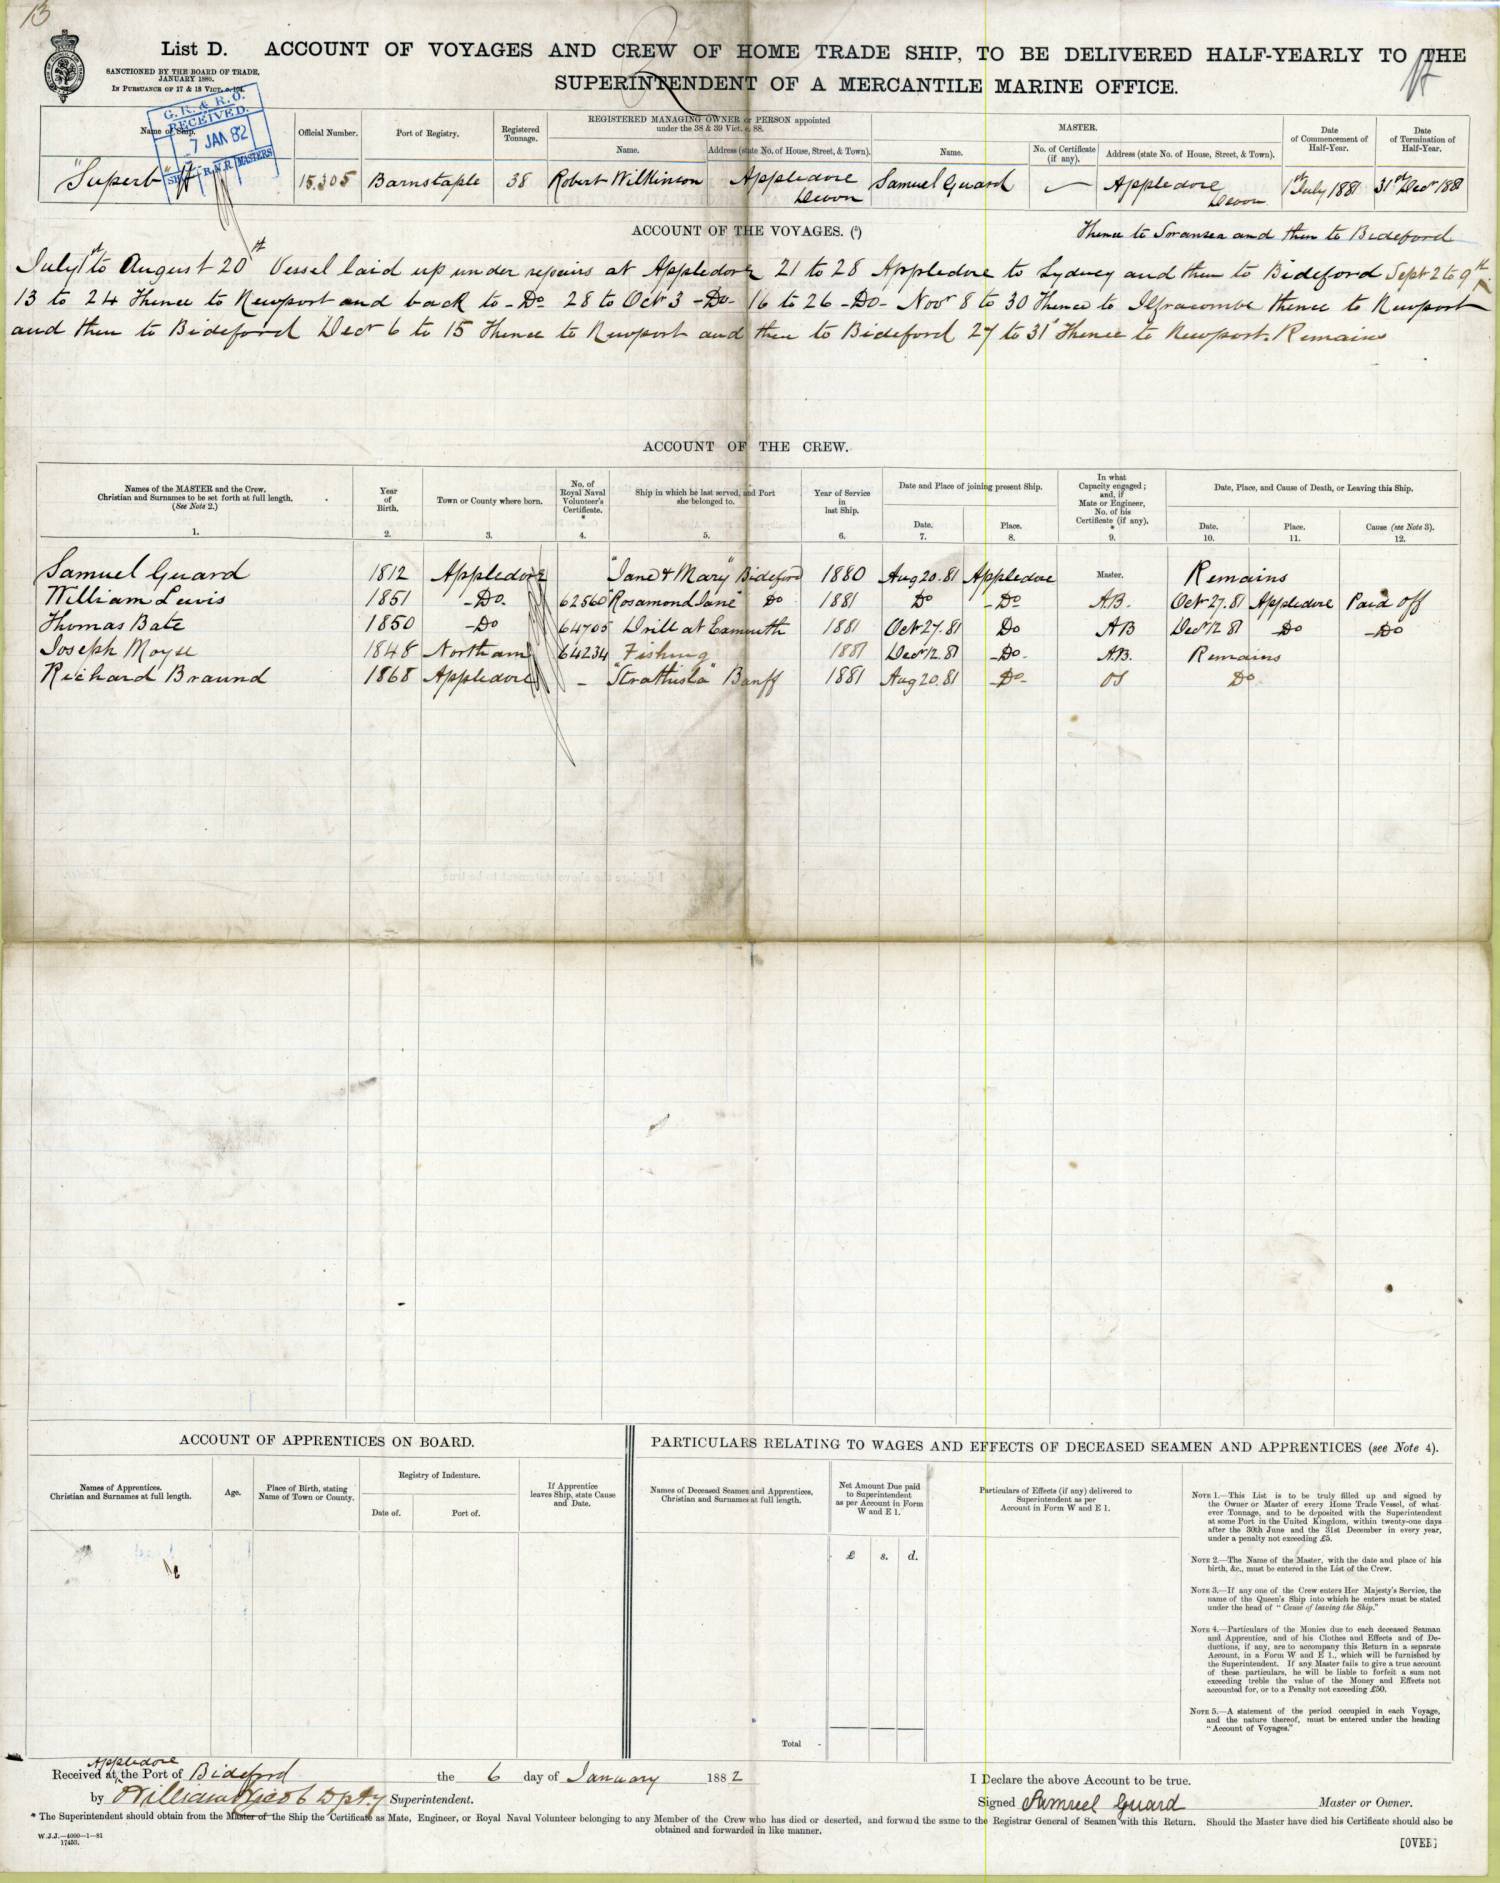 13
List D. ACCOUNT OF VOYAGES AND CREW OF HOME TRADE SHIP, TO BE DELIVERED HALF-YEARLY TO THE
SUPERINTENDENT OF A MERCANTILE MARINE OFFICE.
SANCTIONED BY THE BOARD OF TRADE,
JANUARY 1880.
IN PURSUANCE OF 17 & 18 VICT. c. 104.
G. R. & R. O.
RECEIVED.
7 JAN 82
R.N.R. MASTERS
Name of Ship. Official Number. Port of Registry. Registered Tonnage. REGISTERED MANAGING OWNER or PERSON appointed under the 38 & 39 Vict. c. 88. MASTER. Date of Commencement of Half-Year. Date of Termination of Half-Year.
Name. Address (state No. of House, Street, & Town). Name. No. of Certificate (if any). Address (state No. of House, Street, & Town).
"Superb" 15,305 Barnstaple 38 Robert Wilkinson Appledore Devon Samuel Guard — Appledore Devon 1st July 1881 31st Decr 1881
ACCOUNT OF THE VOYAGES. (5)
Thence to Swansea and then to Bideford
July 1st to August 20th Vessel laid up under repairs at Appledore 21 to 28 Appledore to Lydney and then to Bideford Sept 2 to 9th
13 to 24 Thence to Newport and back to -Do 28 to Octr 3 -Do- 16 to 26 -Do- Novr 8 to 30 Thence to Ilfracombe thence to Newport
and then to Bideford Decr 6 to 15 Thence to Newport and then to Bideford 27 to 31st Thence to Newport. Remains
ACCOUNT OF THE CREW.
Names of the MASTER and the Crew, Christian and Surnames to be set forth at full length. (See Note 2.) Year of Birth. Town or County where born. No. of Royal Naval Volunteer's Certificate. * Ship in which he last served, and Port she belonged to. Year of Service in last Ship. Date and Place of joining present Ship. In what Capacity engaged; and, if Mate or Engineer, No. of his Certificate (if any). * Date, Place, and Cause of Death, or Leaving this Ship.
Date. Place. Date. Place. Cause (see Note 3).
1. 2. 3. 4. 5. 6. 7. 8. 9. 10. 11. 12.
Samuel Guard 1812 Appledore "Jane & Mary" Bideford 1880 Aug 20.81 Appledore Master. Remains
William Lewis 1851 -Do. 62560 "Rosamond Jane" Do 1881 Do -Do A.B. Octr 27.81 Appledore Paid off
Thomas Bate 1850 -Do 64705 Drill at Exmouth 1881 Octr 27.81 Do AB Decr 12 81 -Do -Do
Joseph Moyse 1848 Northam 64234 Fishing 1881 Decr 12.81 -Do- A.B. Remains
Richard Braund 1868 Appledore - "Strathisla" Banff 1881 Aug 20.81 -Do- OS Do
ACCOUNT OF APPRENTICES ON BOARD.
Names of Apprentices. Christian and Surnames at full length. Age. Place of Birth, stating Name of Town or County. Registry of Indenture. If Apprentice leaves Ship, state Cause and Date.
Date of. Port of.
PARTICULARS RELATING TO WAGES AND EFFECTS OF DECEASED SEAMEN AND APPRENTICES (see Note 4).
Names of Deceased Seamen and Apprentices, Christian and Surnames at full length. Net Amount Due paid to Superintendent as per Account in Form W and E 1. Particulars of Effects (if any) delivered to Superintendent as per Account in Form W and E 1.
£ s. d.
Total -
NOTE 1.—This List is to be truly filled up and signed by
the Owner or Master of every Home Trade Vessel, of what-
ever Tonnage, and to be deposited with the Superintendent
at some Port in the United Kingdom, within twenty-one days
after the 30th June and the 31st December in every year,
under a penalty not exceeding £5.
NOTE 2.—The Name of the Master, with the date and place of his
birth, &c., must be entered in the List of the Crew.
NOTE 3.—If any one of the Crew enters Her Majesty's Service, the
name of the Queen's Ship into which he enters must be stated
under the head of "Cause of leaving the Ship."
NOTE 4.—Particulars of the Monies due to each deceased Seaman
and Apprentice, and of his Clothes and Effects and of De-
ductions, if any, are to accompany this Return in a separate
Account, in a Form W and E 1., which will be furnished by
the Superintendent. If any Master fails to give a true account
of these particulars, he will be liable to forfeit a sum not
exceeding treble the value of the Money and Effects not
accounted for, or to a Penalty not exceeding £50.
NOTE 5.—A statement of the period occupied in each Voyage,
and the nature thereof, must be entered under the heading
"Account of Voyages."
Appledore
Received at the Port of Bideford the 6 day of January 1882
by William Dpty Superintendent.
I Declare the above Account to be true.
Signed Samuel Guard Master or Owner.
* The Superintendent should obtain from the Master of the Ship the Certificate as Mate, Engineer, or Royal Naval Volunteer belonging to any Member of the Crew who has died or deserted, and forward the same to the Registrar General of Seamen with this Return. Should the Master have died his Certificate should also be
obtained and forwarded in like manner.
W.J.J.—4000—1—81
17453.
[OVER]